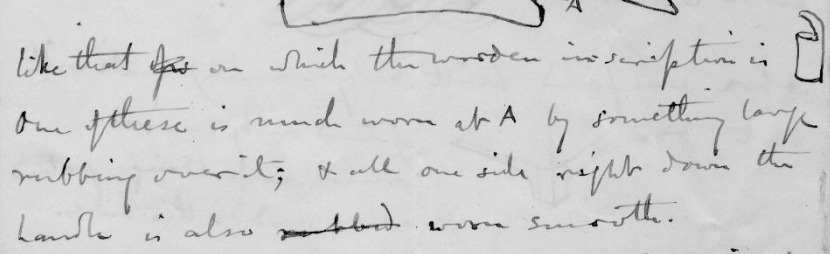 A
like that on which the wooden inscription is
One of these is much worn at A by something large
rubbing over it; & all one side right down the
handle is also rubbed worn smooth.